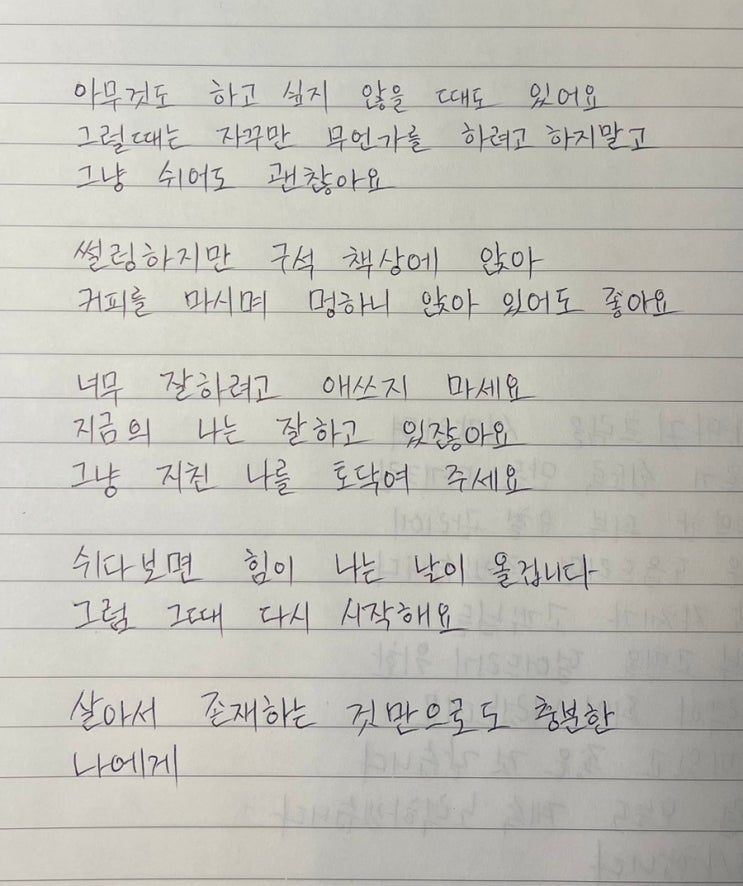 아무것도 하고 싶지 않을 때도 있어요
그럴때는 자꾸만 무언가를 하려고 하지말고
그냥 쉬어도 괜찮아요
썰렁하지만 구석 책상에 앉아
커피를 마시며 멍하니 앉아 있어도 좋아요
너무 잘하려고 애쓰지 마세요
지금의 나는 잘하고 있잖아요
그냥 지친 나를 토닥여 주세요
쉬다보면 힘이 나는 날이 올겁니다
그럼 그때 다시 시작해요
살아서 존재하는 것만으로도 충분한
나에게